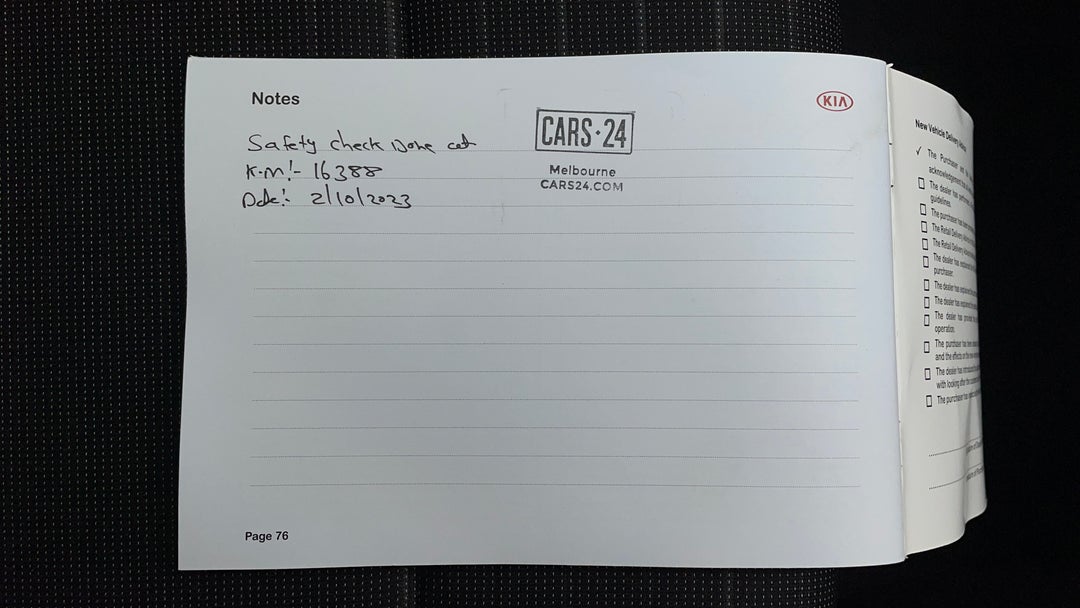 Notes
KIA
Safety check Done at
K.M:- 16388
Date:- 2/10/2023
CARS·24
Melbourne
CARS24.COM
Page 76
New Vehicle Delivery
✓ The Purchaser
acknowledgement
The dealer has
guidelines.
The purchaser has been
The Retail Delivery
The Retail Delivery
The dealer has explained
purchaser.
The dealer has explained the
The dealer has explained the
The dealer has provided
operation.
The purchaser has been
and the effects on the
The dealer has introduced the
with looking after the
The purchaser has